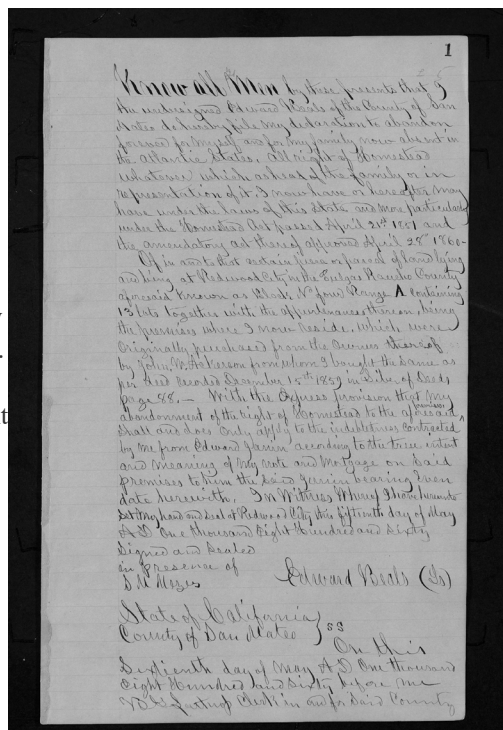 1
Know all Men by these presents that I
the undersigned Edward Beals of the County of San
Mateo do hereby file my declaration to abandon
forever for myself and for my family now absent in
the Atlantic States, all right of Homestead
whatever which as head of the family or in
representation of it I now have or hereafter may
have under the laws of this State and more particularly
under the Homestead Act passed April 21st 1851 and
the amendatory act thereof approved April 28th 1860-
Of in and to that certain piece or parcel of land lying
and being at Redwood City in the Pulgas Rancho County
aforesaid known as Block No four Range A containing
13 lots together with the appurtenances thereon, being
the premises where I now reside, which were
Originally purchased from the Owners thereof
by John W. Ackerson from whom I bought the same as
per deed recorded December 15th 1859 in Liber of Deeds
page 88,— With the express provision that my
abandonment of the right of Homestead to the aforesaid premises
shall and does only apply to the indebtedness contracted
by me from Edward Janin according to the true intent
and meaning of my note and Mortgage on Said
premises to him the said Janin bearing even
date herewith, In Witness Whereof I have hereunto
set my hand and seal at Redwood City this fifteenth day of May
A D One thousand Eight Hundred and Sixty
Signed and Sealed
in presence of
Edward Beals
State of California
County of San Mateo } SS
On this
Sixteenth day of May A D One thousand
Eight Hundred and Sixty before me
Clerk in and for Said County